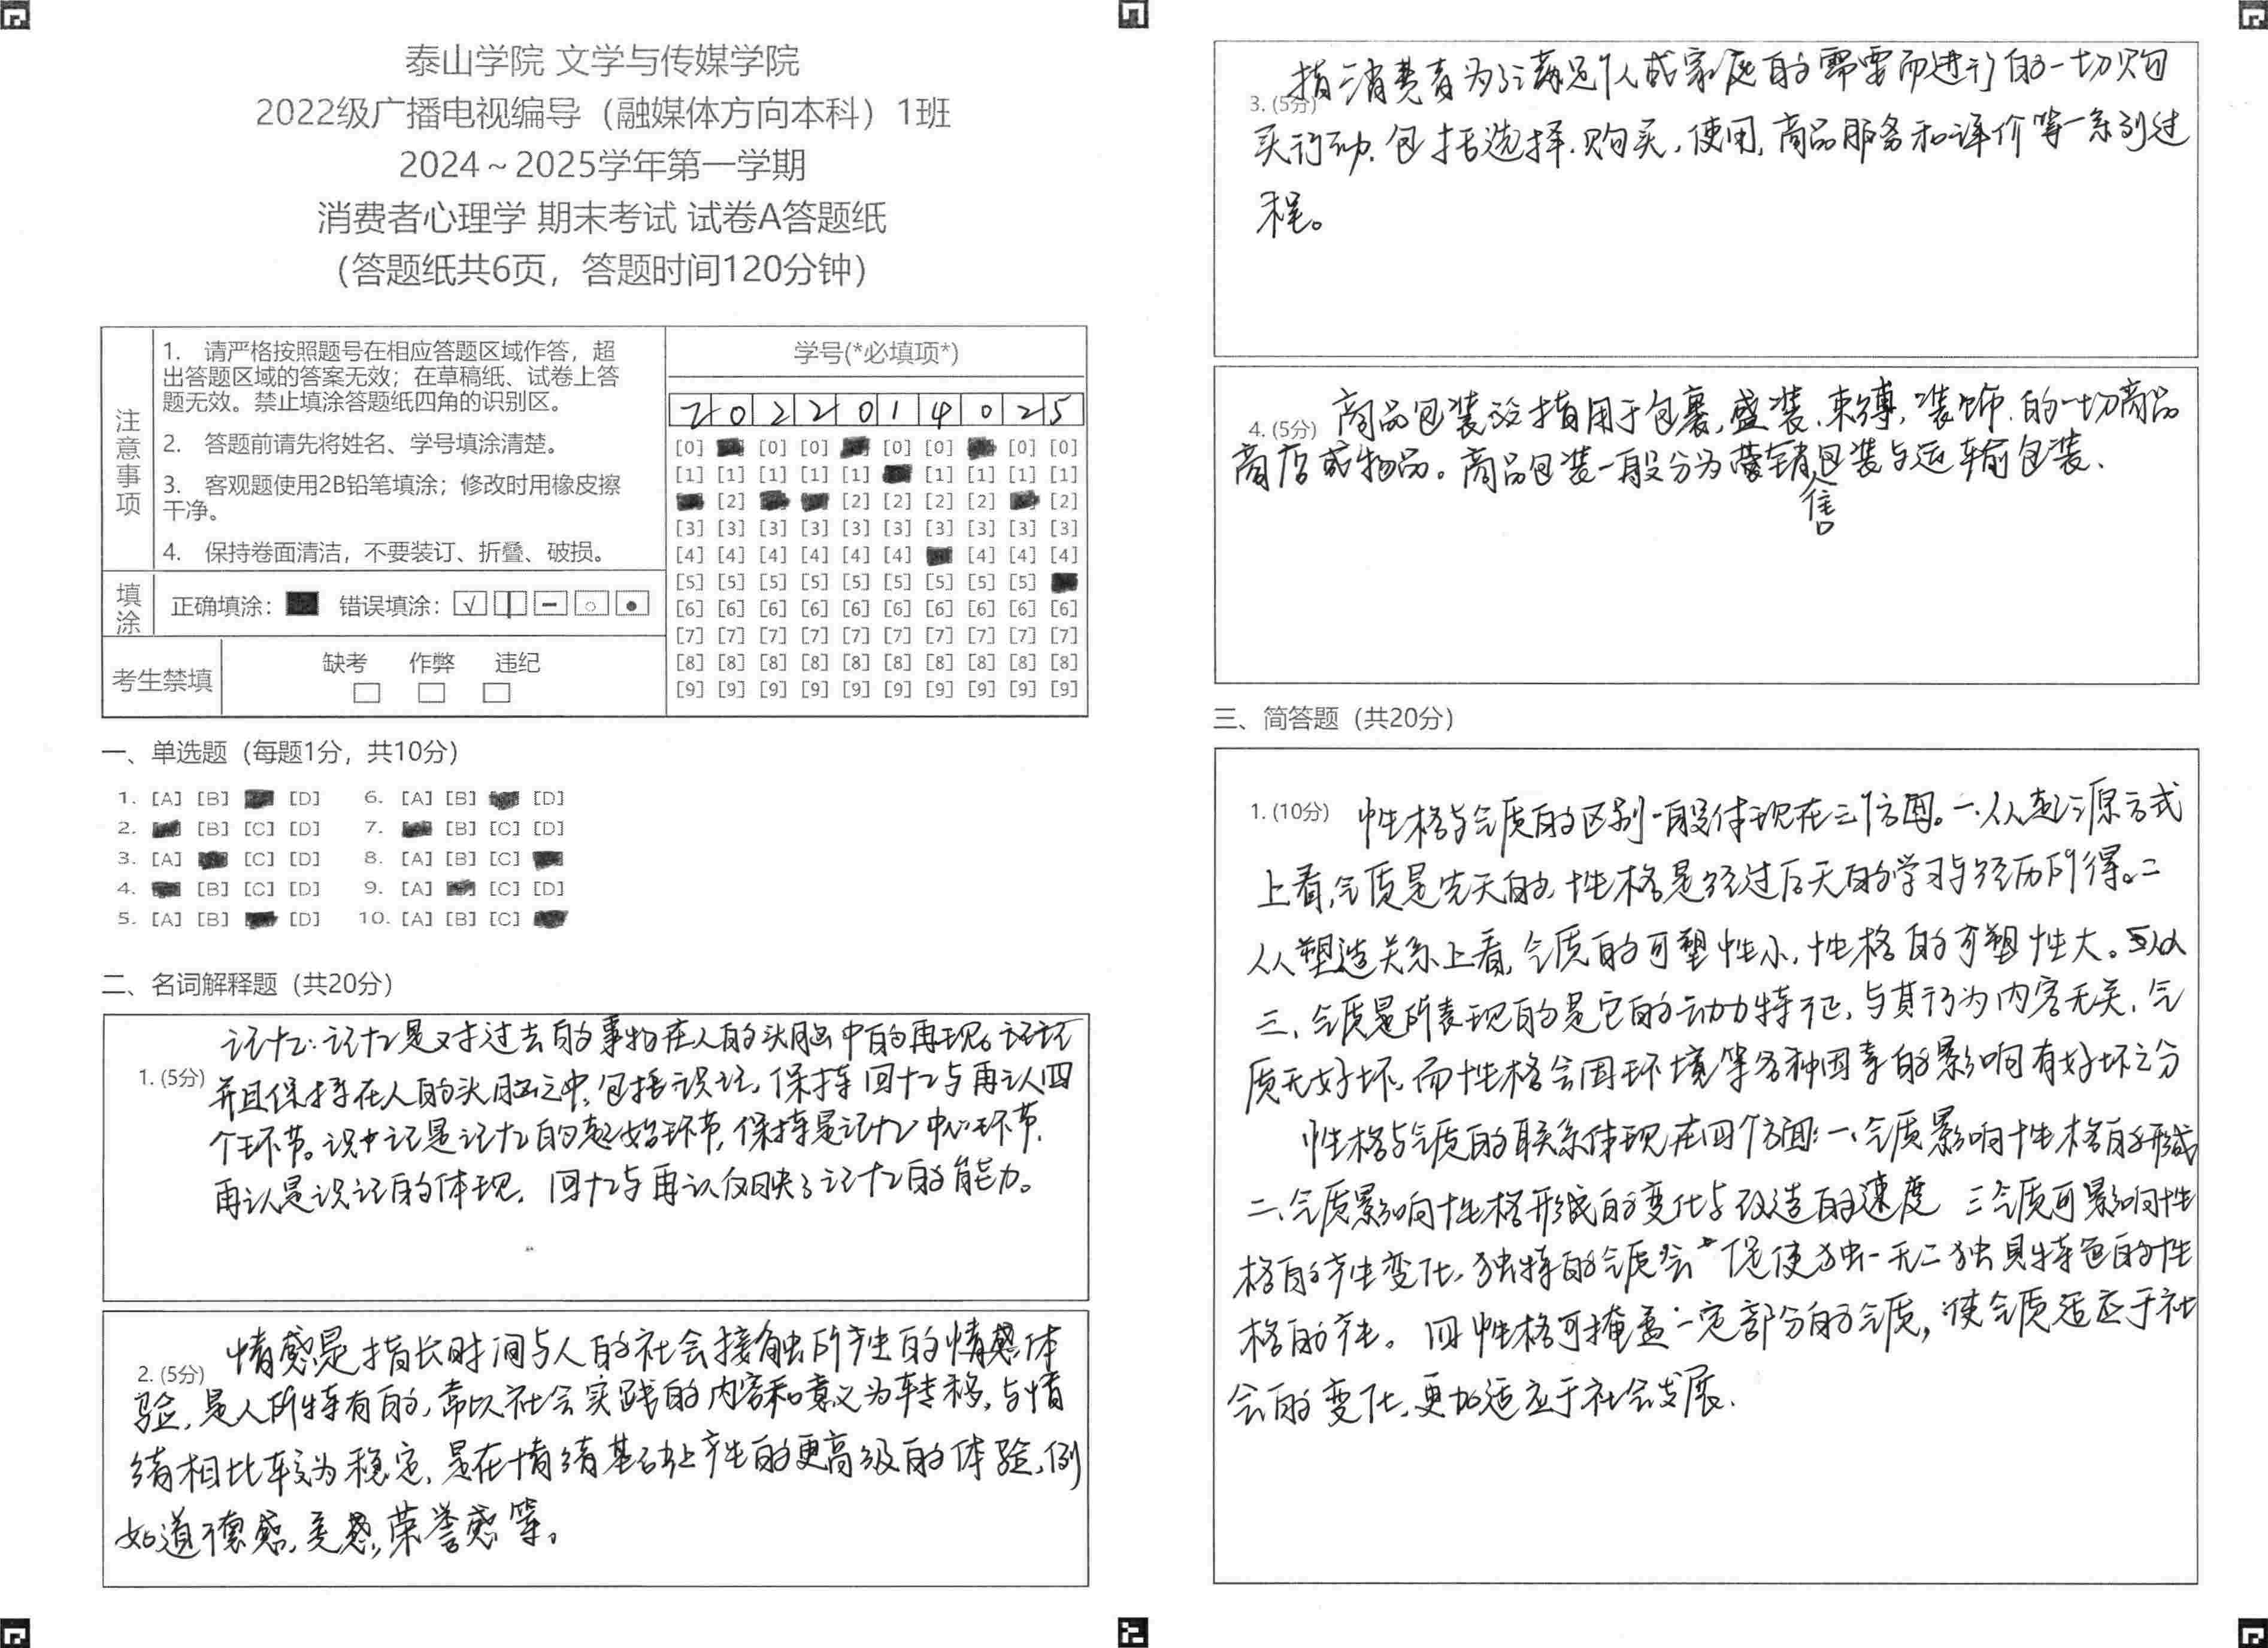 泰山学院 文学与传媒学院
2022级广播电视编导（融媒体方向本科）1班
2024～2025学年第一学期
消费者心理学 期末考试 试卷A答题纸
（答题纸共6页，答题时间120分钟）
注意事项
1. 请严格按照题号在相应答题区域作答，超
出答题区域的答案无效；在草稿纸、试卷上答
题无效。禁止填涂答题纸四角的识别区。
2. 答题前请先将姓名、学号填涂清楚。
3. 客观题使用2B铅笔填涂；修改时用橡皮擦
干净。
4. 保持卷面清洁，不要装订、折叠、破损。
填涂
正确填涂： 错误填涂：
考生禁填
缺考 作弊 违纪
学号(*必填项*)
2022014025
[0] [0] [0] [0] [0] [0] [0]
[1] [1] [1] [1] [1] [1] [1] [1] [1]
[2] [2] [2] [2] [2] [2]
[3] [3] [3] [3] [3] [3] [3] [3] [3] [3]
[4] [4] [4] [4] [4] [4] [4] [4] [4]
[5] [5] [5] [5] [5] [5] [5] [5] [5]
[6] [6] [6] [6] [6] [6] [6] [6] [6] [6]
[7] [7] [7] [7] [7] [7] [7] [7] [7] [7]
[8] [8] [8] [8] [8] [8] [8] [8] [8] [8]
[9] [9] [9] [9] [9] [9] [9] [9] [9] [9]
一、单选题（每题1分，共10分）
1. [A] [B] [D] 6. [A] [B] [D]
2. [B] [C] [D] 7. [B] [C] [D]
3. [A] [C] [D] 8. [A] [B] [C]
4. [B] [C] [D] 9. [A] [C] [D]
5. [A] [B] [D] 10. [A] [B] [C]
二、名词解释题（共20分）
记忆：记忆是对过去的事物在人的头脑中的再现。
1. (5分) 并且保持在人的头脑之中，包括识记，保持 回忆与再认四
个环节。识记是记忆的起始环节，保持是记忆中心环节，
再认是识记的体现，回忆与再认反映了记忆的能力。
2. (5分) 情感是指长时间与人的社会接触所产生的情感体
验，是人所特有的，常以社会实践的内容和意义为转移，与情
绪相比较为稳定，是在情绪基础上产生的更高级的体验，例
如道德感，美感，荣誉感等。
指消费者为了满足个人或家庭的需要而进行的一切购
3. (5分)
买行动，包括选择，购买，使用，商品服务和评价等一系列过
程。
4. (5分) 商品包装 指用于包裹，盛装，束缚，装饰，的一切商品
商店或物品。商品包装一般分为 销售包装与运输包装、
三、简答题（共20分）
1. (10分) 性格与气质的区别一般体现在三个方面。一、从起源方式
上看，气质是先天的，性格是经过后天的学习与经历所得。二
从塑造关系上看，气质的可塑性小，性格的可塑性大。
三、气质是所表现的是它的动力特征，与其行为内容无关，气
质无好坏，而性格会因环境等各种因素的影响有好坏之分
性格与气质的联系体现在四个方面：一、气质影响性格的形成
二、气质影响性格形成的变化与改造的速度 三气质可影响性
格的产生变化，独特的气质会促使独一无二独具特色的性
格的产生。四性格可掩盖一定部分的气质，使气质适应于社
会的变化，更加适应于社会发展.